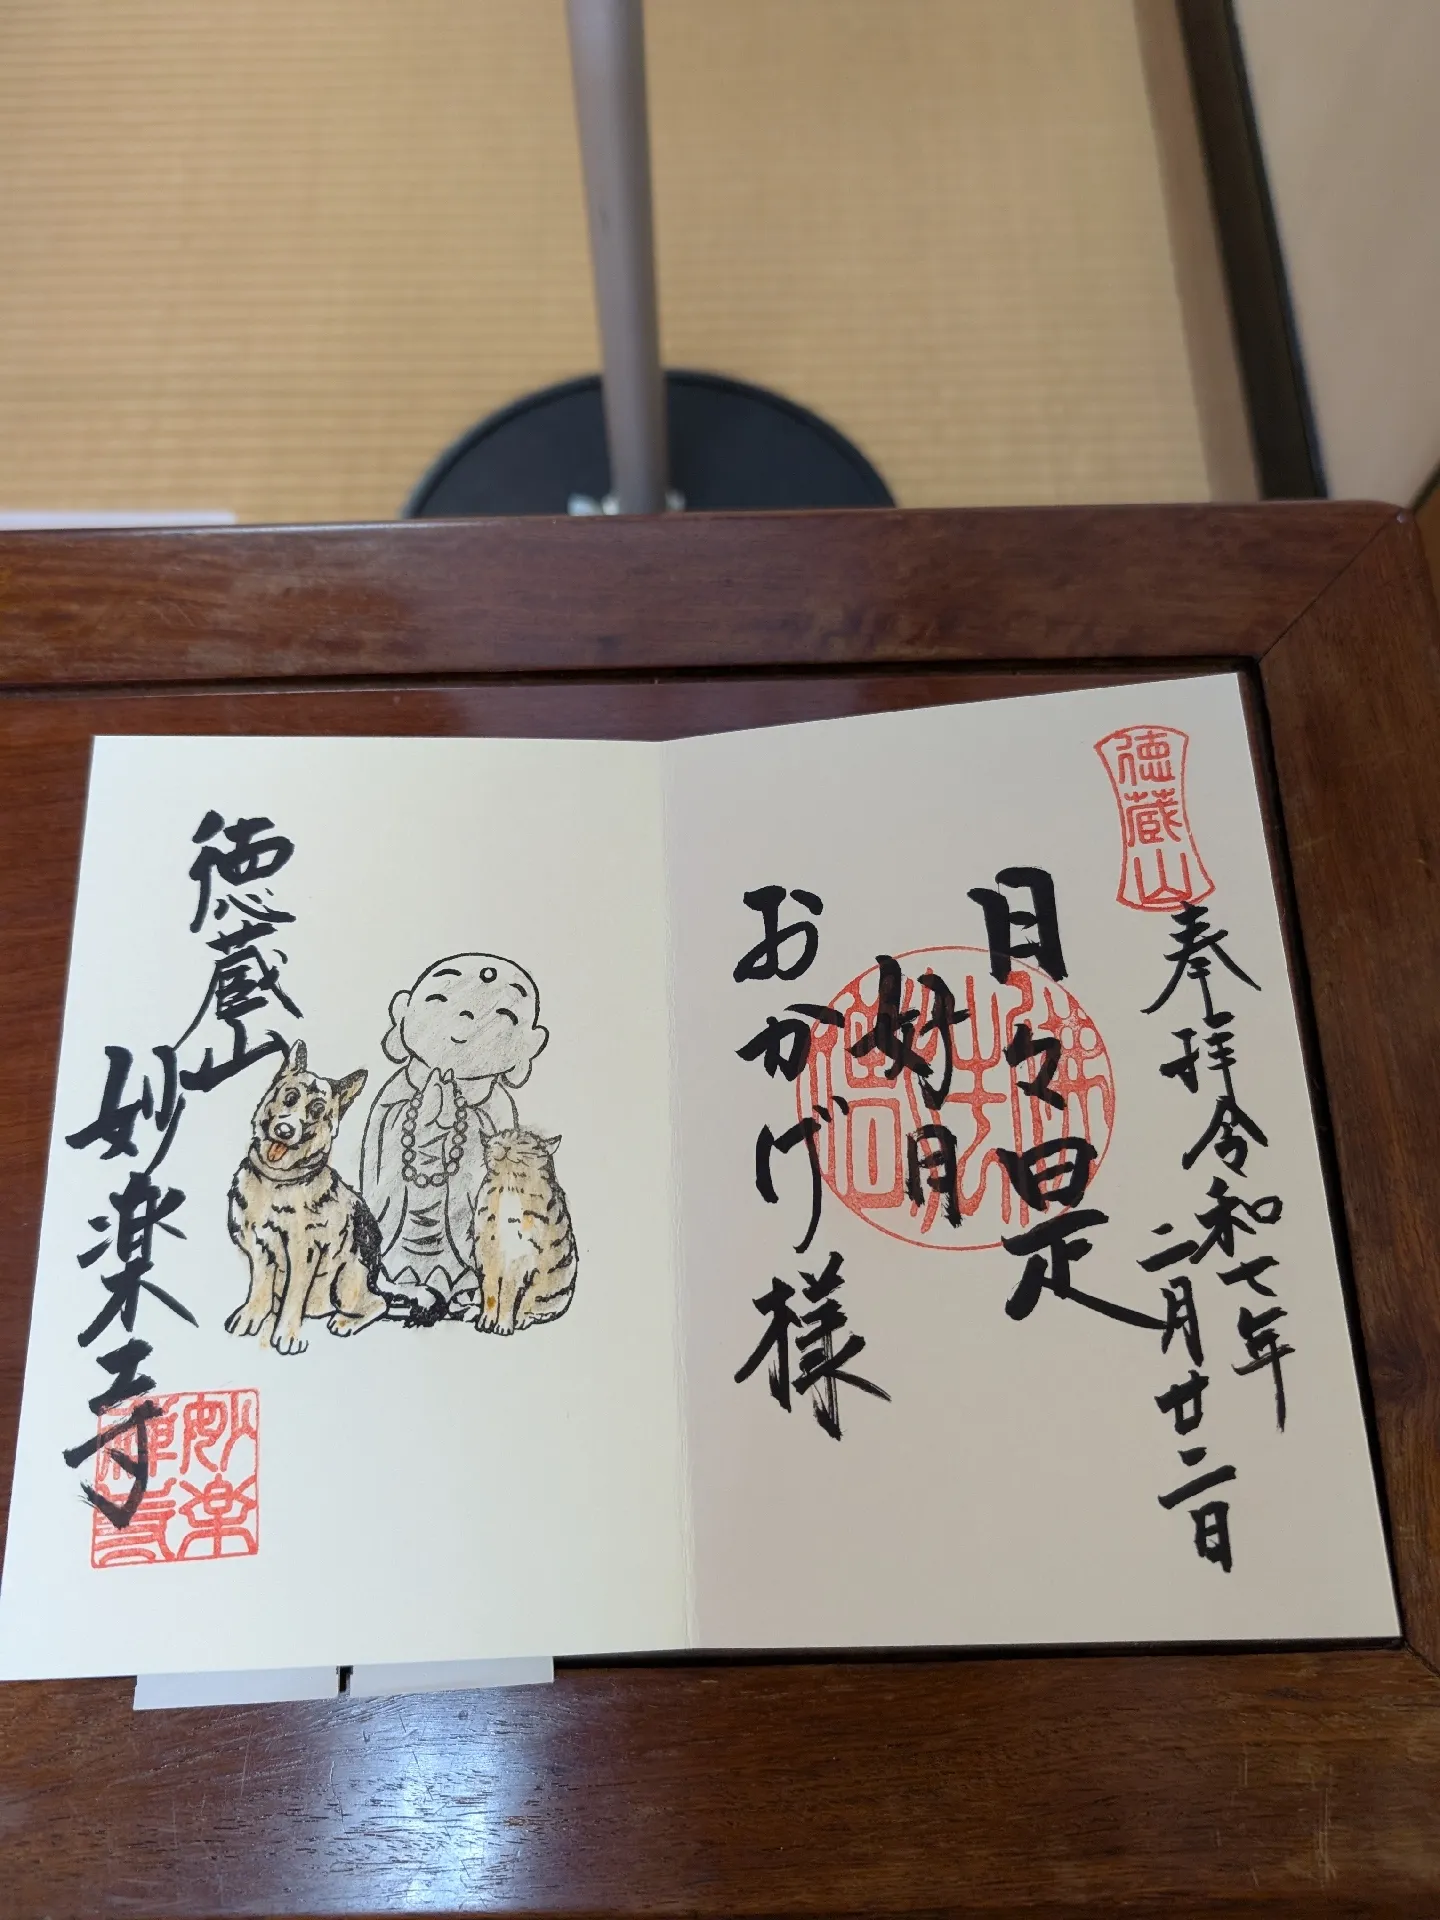 徳蔵山
奉拝令和七年
二月廿二日
日々日是
好日
おかげ様
佛法僧
徳蔵山
妙楽寺
妙楽
禅寺